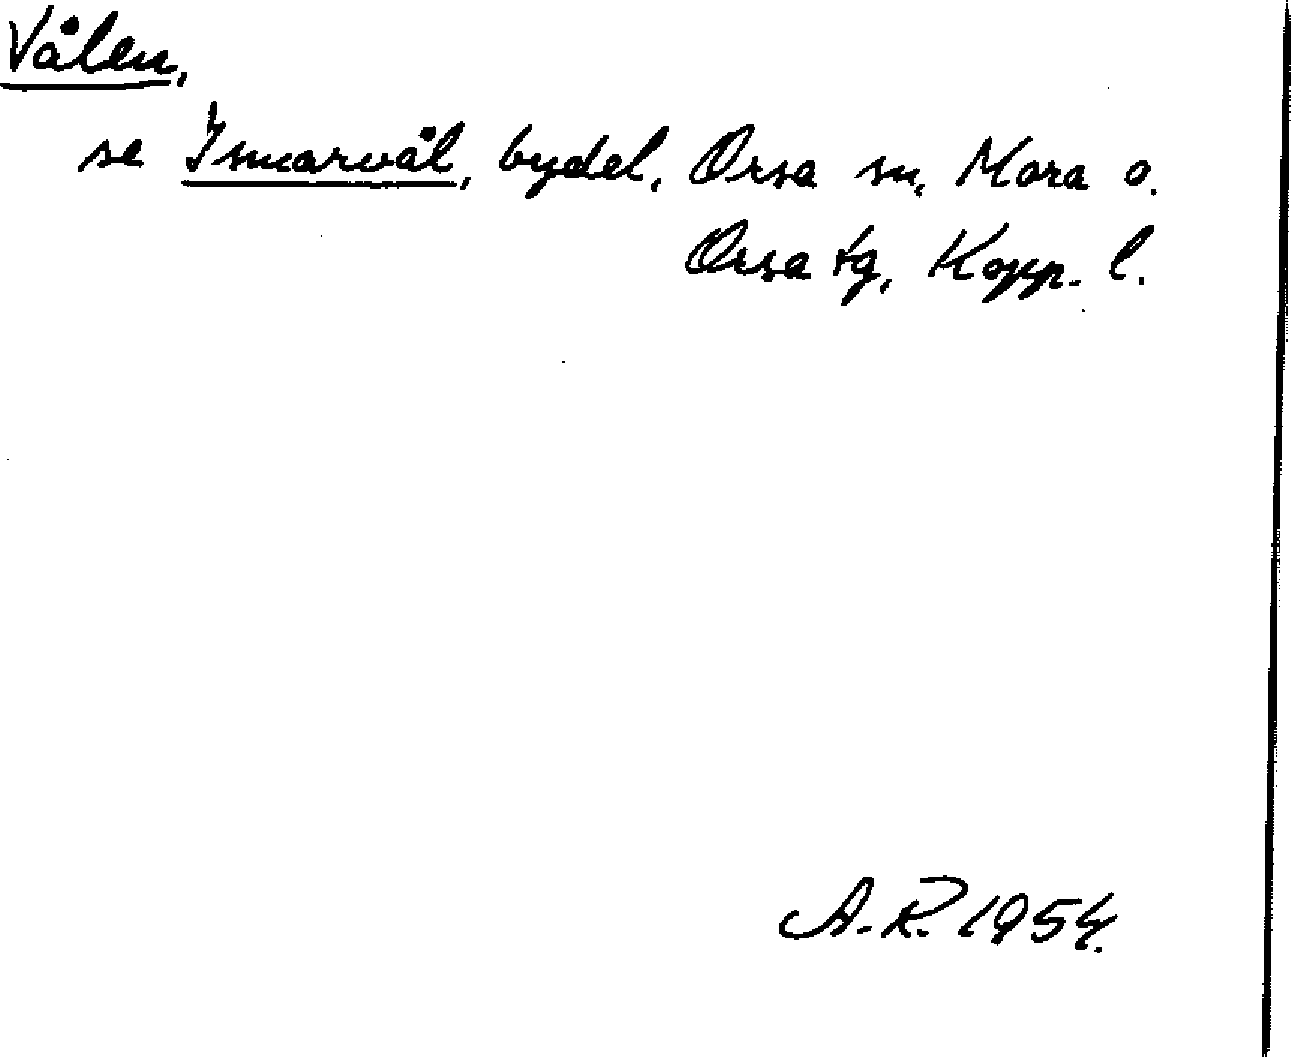 Vålen,
se Ismarvål, bydel, Orsa sn, Mora o.
Orsa tg, Kopp. l.
A.R. 1954.